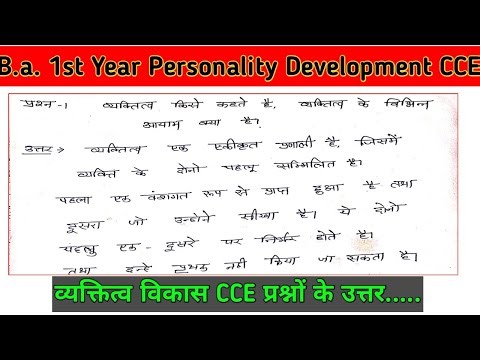 B.a. 1st Year Personality Development CCE
प्रश्न-1 व्यक्तित्व किसे कहते है, व्यक्तित्व के विभिन्न
आयाम क्या है।
उत्तर → व्यक्तित्व एक एकीकृत प्रणाली है, जिसमें
व्यक्ति के दोनो पहलू सम्मिलित है।
पहला एक वंशगत रूप से प्राप्त हुआ है तथा
दूसरा जो उन्होने सीखा है। ये दोनो
पहलु एक-दूसरे पर निर्भर होते है।
तथा इन्हे पृथक नही किया जा सकता है।
व्यक्तित्व विकास CCE प्रश्नों के उत्तर.....